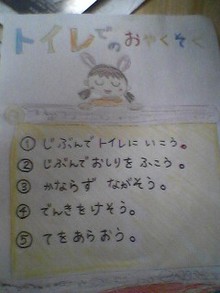 トイレでのおやくそく
① じぶんでトイレにいこう。
② じぶんでおしりをふこう。
③ かならず ながそう。
④ でんきをけそう。
⑤ てをあらおう。